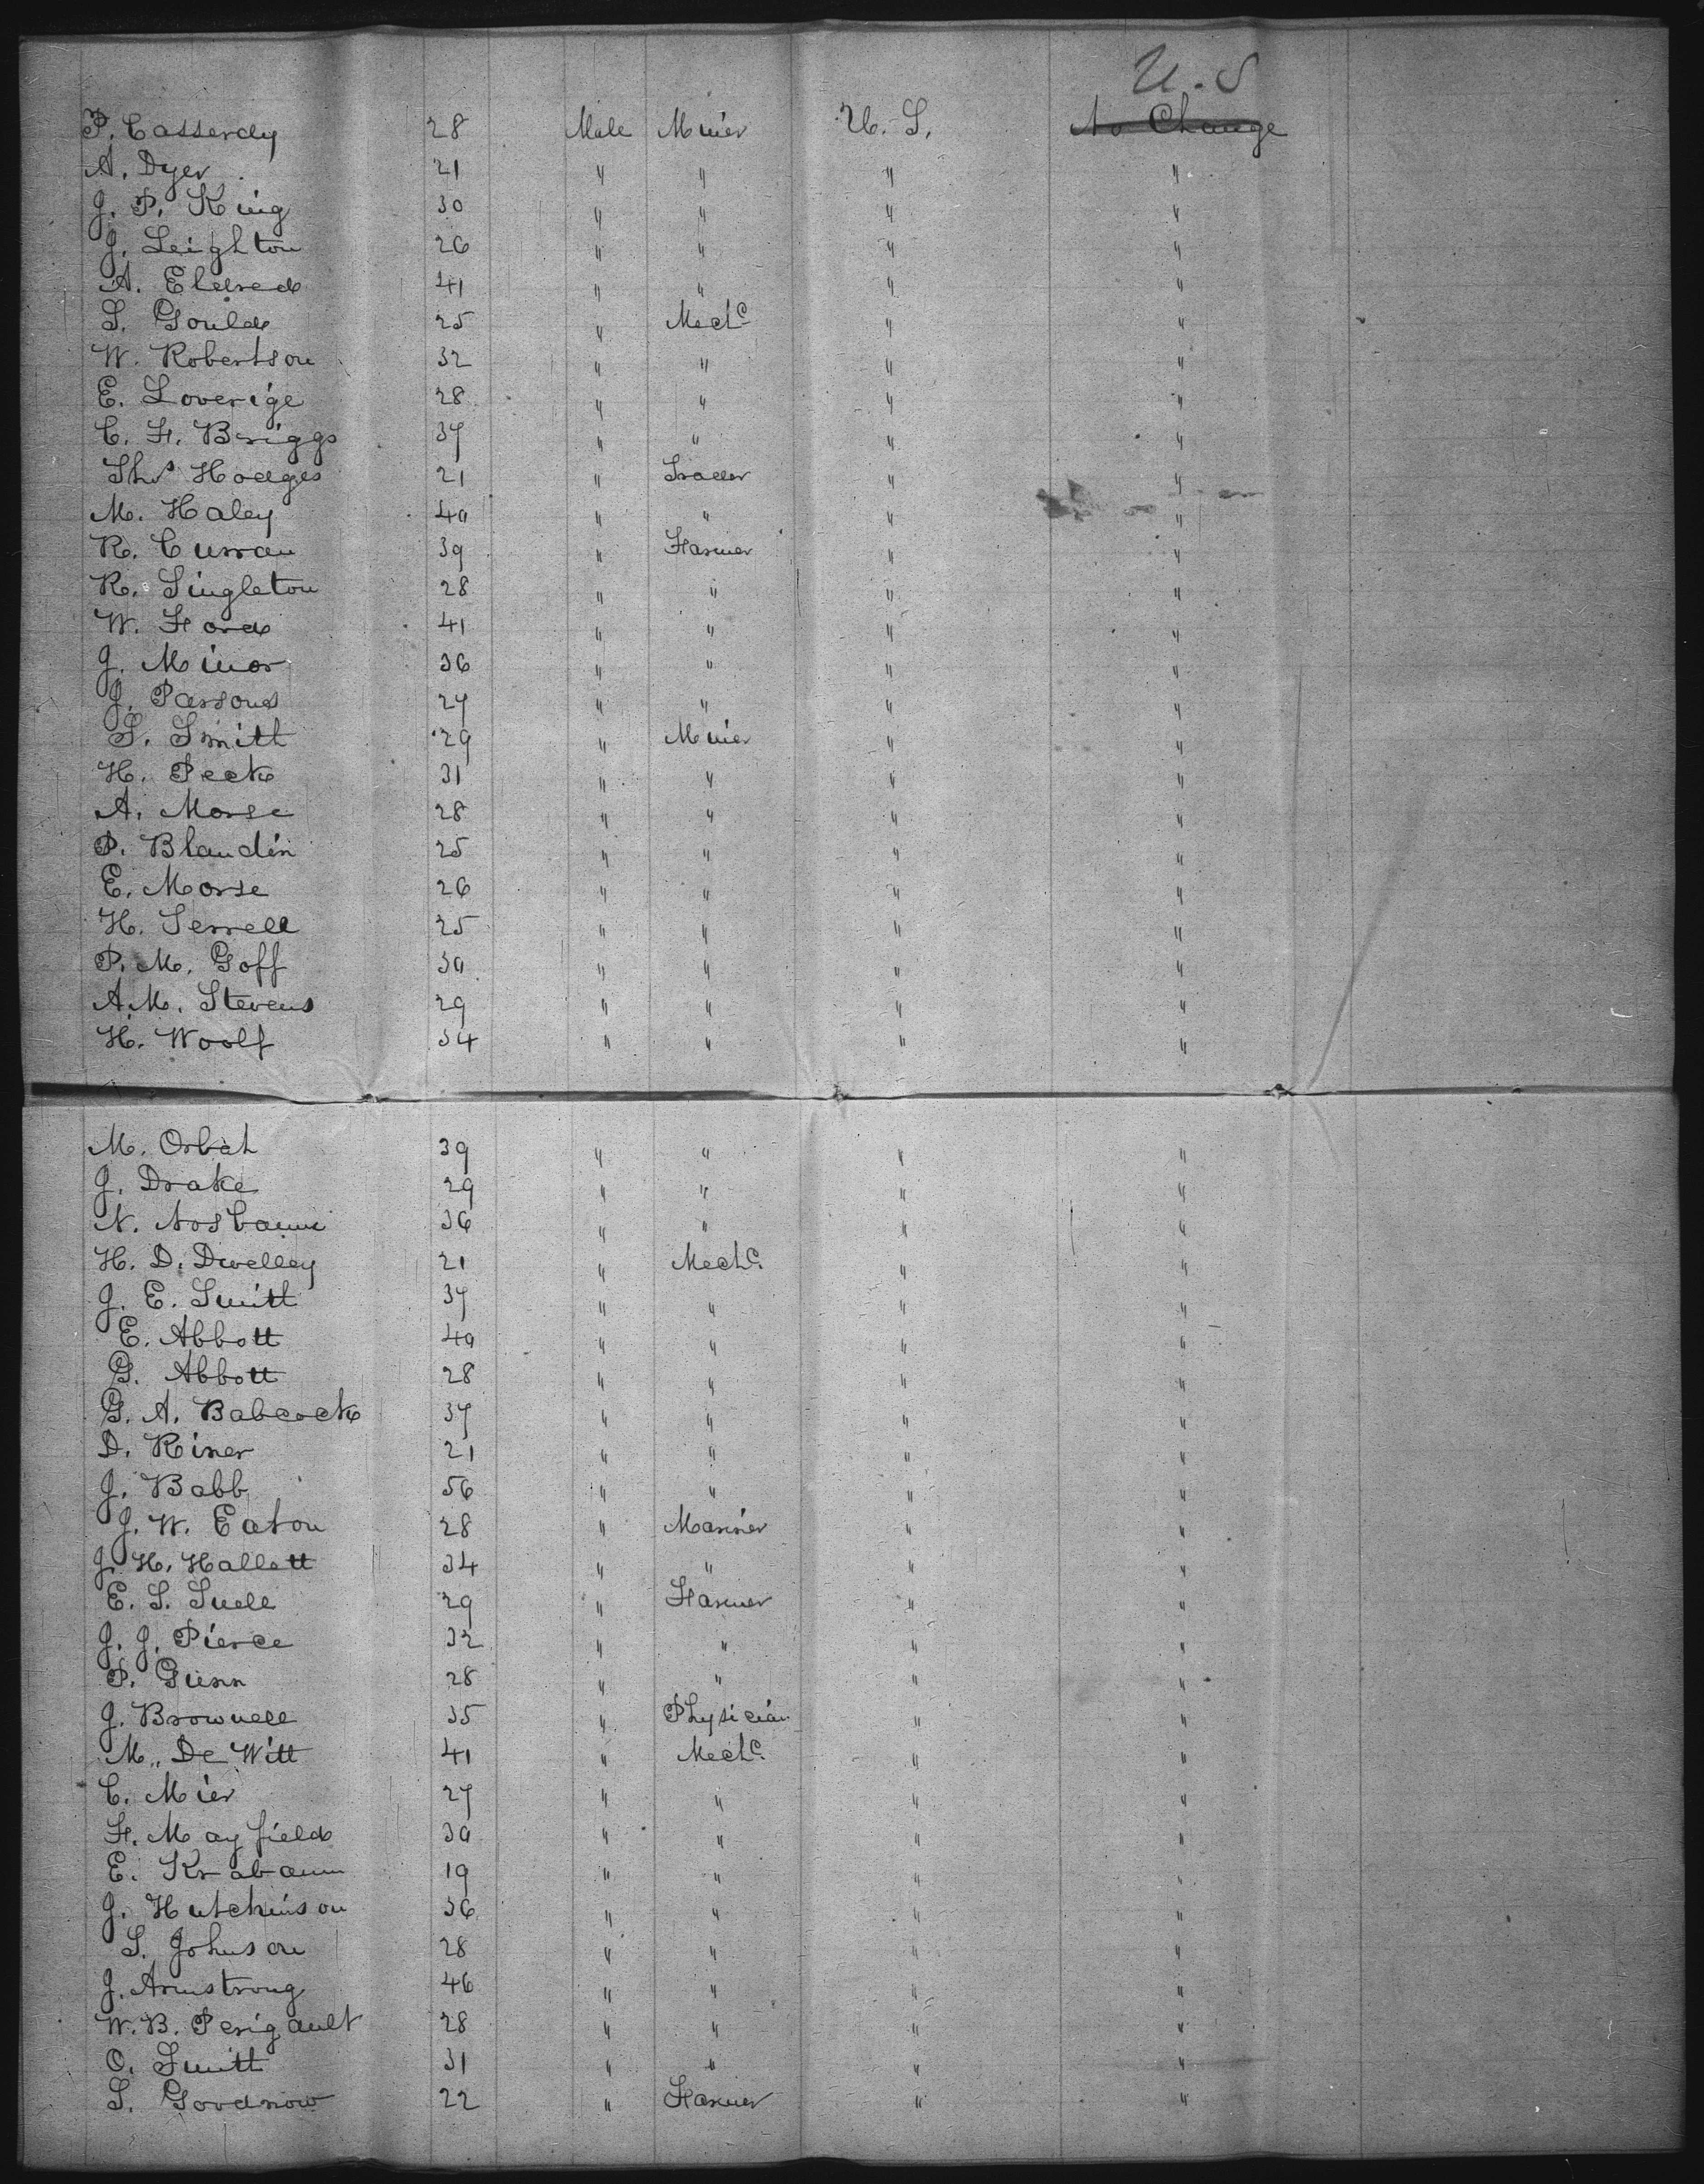 U.S
P. Casserdy 28 Male Miner U. S. No Change
A. Dyer 21 " " " "
J. P. King 30 " " " "
J. Leighton 26 " " " "
A. Eldred 41 " " " "
S. Gould 25 " Mechc " "
W. Robertson 32 " " " "
E. Loverige 28 " " " "
C. F. Briggs 37 " " " "
Ths Hodges 21 " Trader " "
M. Haley 40 " " " "
R. Curran 39 " Farmer " "
R. Singleton 28 " " " "
W. Ford 41 " " " "
J. Minor 36 " " " "
J. Parsons 27 " " " "
S. Smith 29 " Miner " "
H. Peck 31 " " " "
A. Morse 28 " " " "
P. Blandin 25 " " " "
E. Morse 26 " " " "
H. Serrell 25 " " " "
P. M. Goff 30 " " " "
A.M. Stevens 29 " " " "
H. Woolf 34 " " " "
M. Orbah 39 " " " "
J. Drake 29 " " " "
N. Nosbaum 36 " " " "
H. D. Dwelley 21 " Mechc. " "
J. E. Smith 37 " " " "
E. Abbott 40 " " " "
G. Abbott 28 " " " "
G. A. Babcock 37 " " " "
D. Riner 21 " " " "
J. Babb 56 " " " "
J. W. Eaton 28 " Mariner " "
J. H. Hallett 34 " " " "
E. S. Snell 29 " Farmer " "
J. J. Pierce 32 " " " "
P. Gunn 28 " " " "
J. Brownell 35 " Physician " "
M. De Witt 41 " Mechc. " "
C. Mier 27 " " " "
F. Mayfield 30 " " " "
E. Krabaum 19 " " " "
J. Hutchinson 36 " " " "
S. Johnson 28 " " " "
J. Armstrong 46 " " " "
W. B. Perigault 28 " " " "
O. Smith 31 " " " "
S. Goodnow 22 " Farmer " "